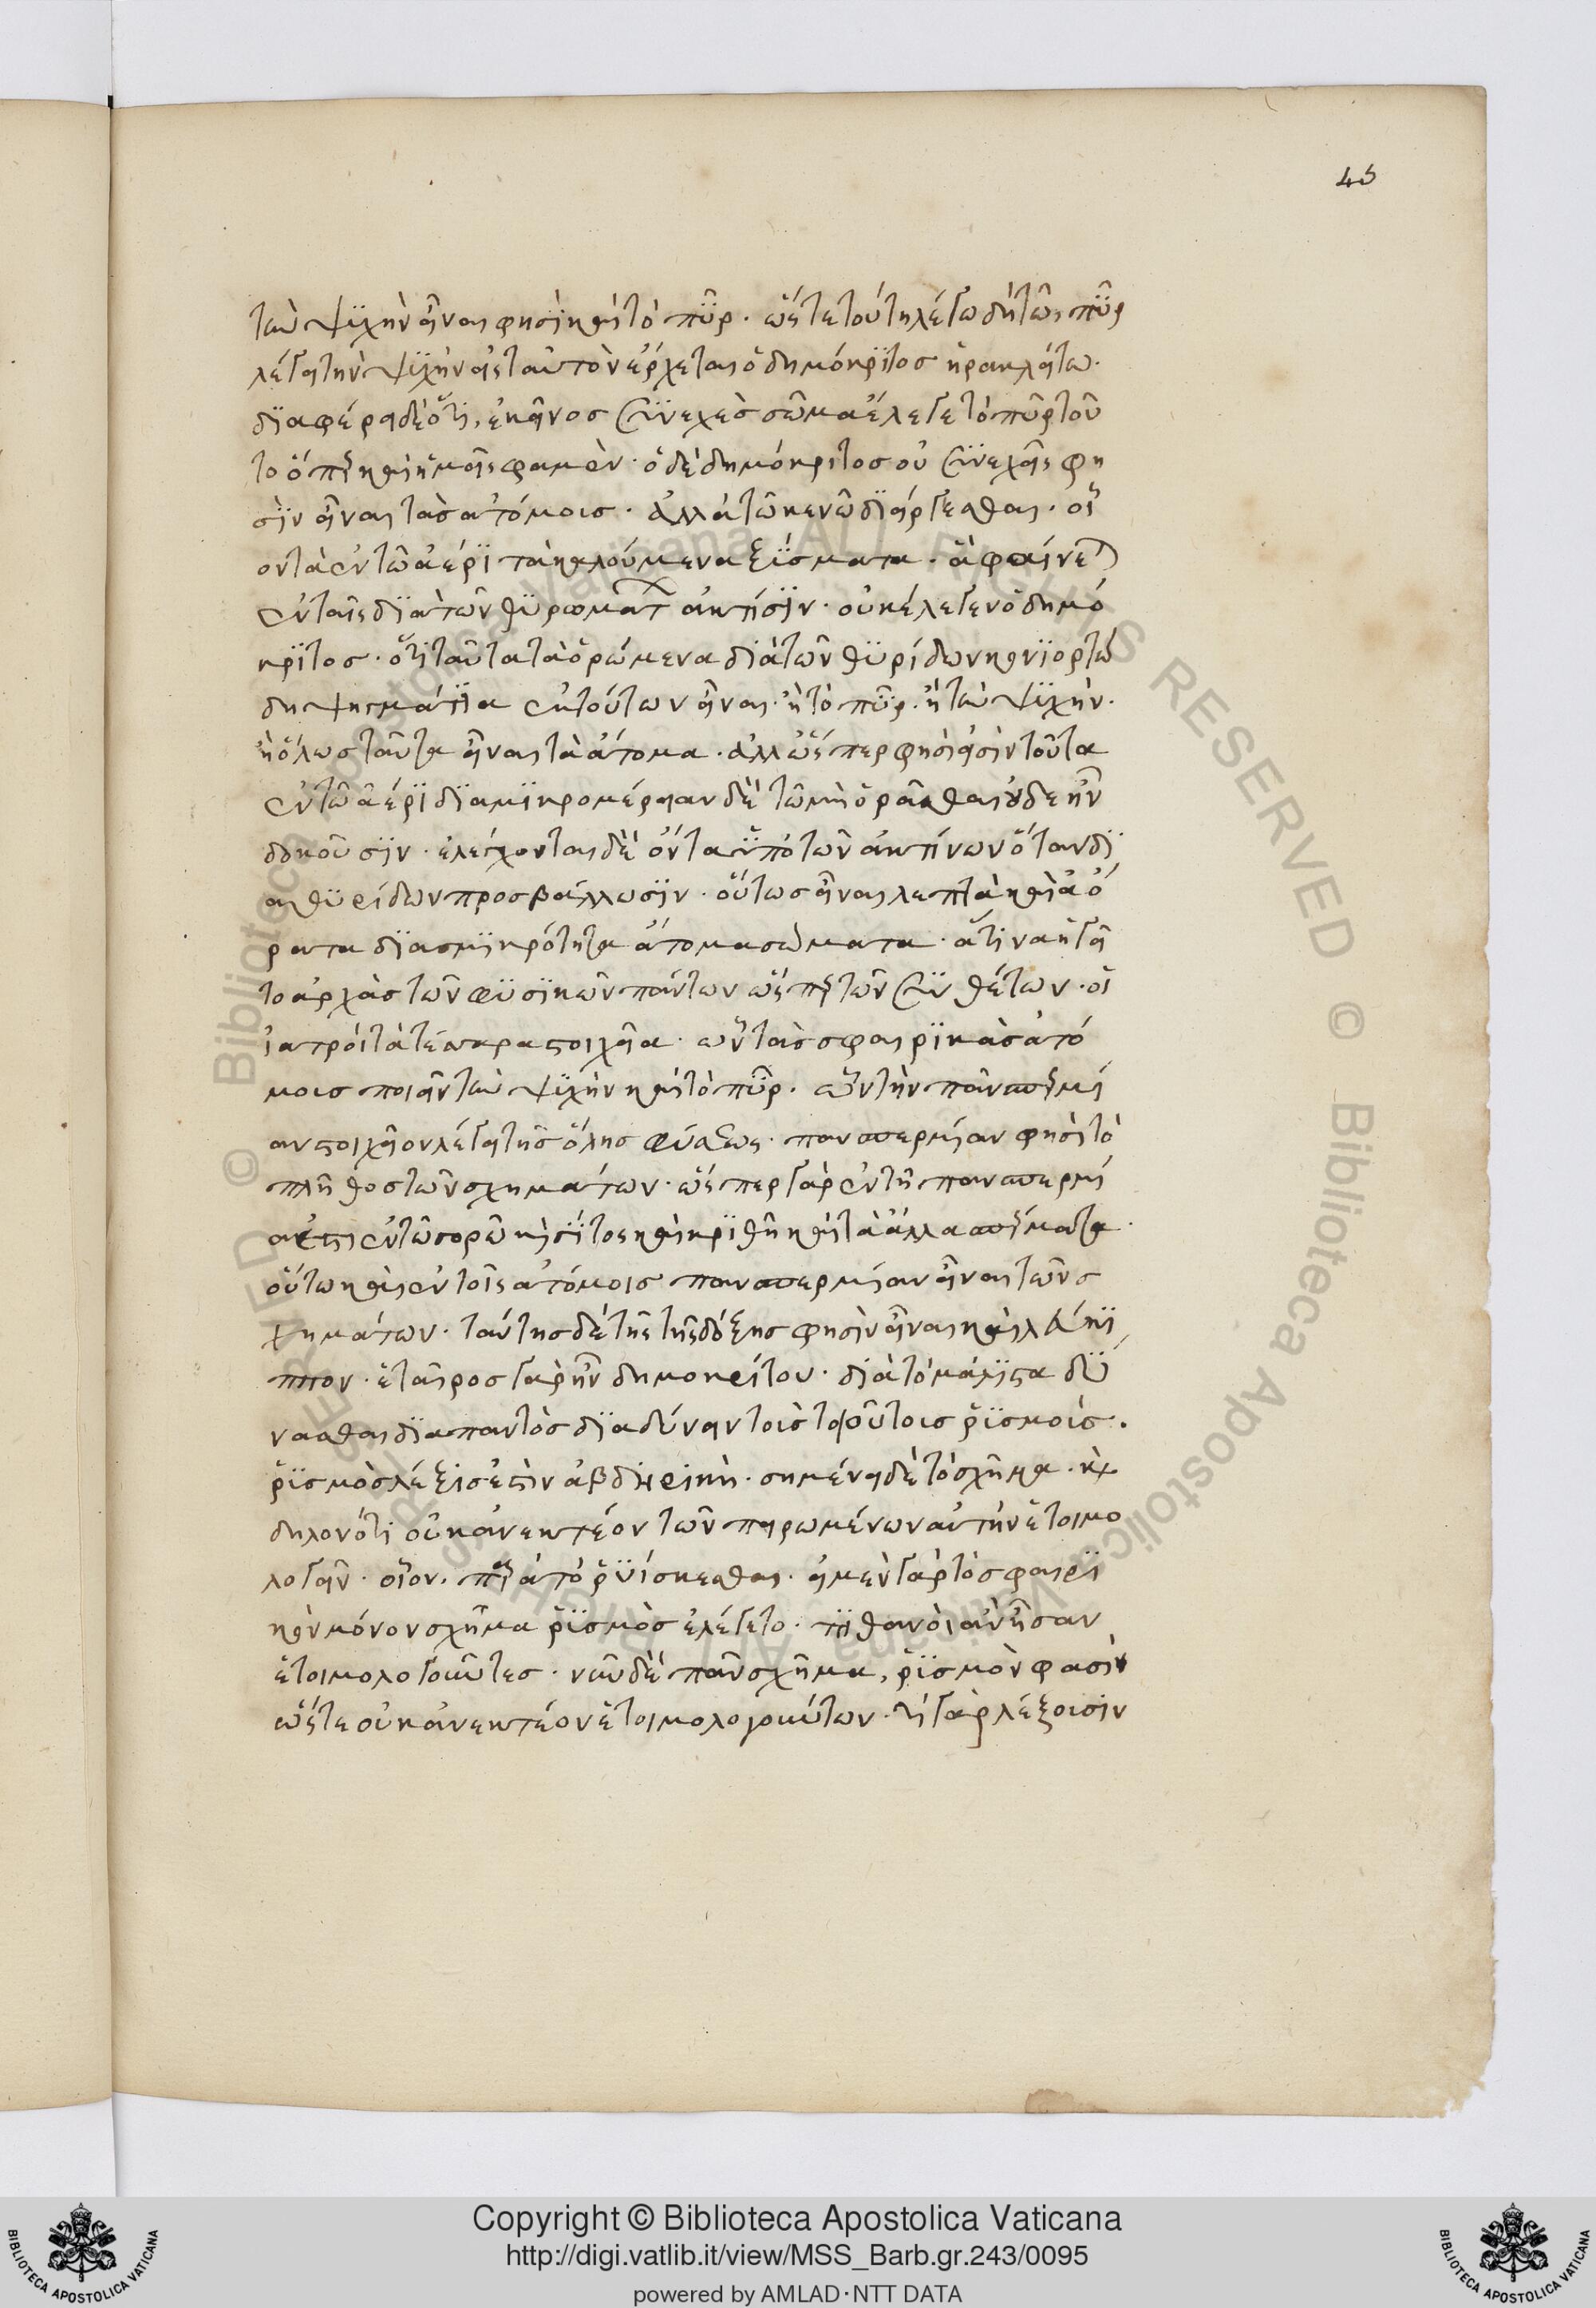 45
τὴν ψυχὴν εἶναι φησὶ καὶ τὸ πῦρ. ὥστε τούτῃ λέγω δὴ τῷ πῦρ
λέγειν τὴν ψυχὴν εἰς ταὐτὸν ἔρχεται ὁ δημόκριτος ἡρακλείτω.
διαφέρει δὲ ὅτι, ἐκεῖνος συνεχὲς σῶμα ἔλεγε τὸ πῦρ τοῦ
το ὅπερ καὶ ἡμεῖς φαμὲν. ὁ δὲ δημόκριτος οὐ συνεχεῖς φη
σὶν εἶναι τὰς ἀτόμοις. ἀλλὰ τῶ κενῶ διείργεσθαι. οἷ
ον τὰ ἐν τῶ ἀέρι τὰ καλούμενα ξύσματα. ἃ φαίνεται
ἐν ταῖς διὰ τῶν θυρωμάτ ἀκτίσιν. οὐκ ἔλεγεν ὁ δημό
κριτος. ὅτι ταῦτα τὰ ὁρώμενα διὰ τῶν θυρίδων κονιορτώ
δη ψηγμάτια ἐκ τούτων εἶναι. ἢ τὸ πῦρ. ἢ τὴν ψυχὴν.
ἢ ὅλως ταῦτα εἶναι τὰ ἄτομα. ἀλλ ὥσπερ φησὶ εἰσὶν τοῦτα
ἐν τῶ ἀέρι διὰ μικρομέρειαν δὲ τῶ μὴ ὁρᾶσθαι οὐδὲ ἦν
δοκοῦσιν. ἐλέγχονται δὲ ὄντα ὑπὸ τῶν ἀκτίνων ὅταν δι
α θυρίδων προσβάλλωσιν. οὕτως εἶναι λεπτὰ καὶ ἀό
ρατα διὰ σμικρότητα ἄτομα σώματα. ἅτινα ἡγεῖ
το ἀρχὰς τῶν φυσικῶν πάντων ὥσπερ τῶν συνθέτων. οἱ
ἰατροὶ τὰ τέσσαρα στοιχεῖα. ὧν τὰς σφαιρικὰς ἀτό
μοις ποιεῖν τὴν ψυχὴν καὶ τὸ πῦρ. ὧν τὴν πανσπερμί
αν στοιχεῖον λέγει τῆς ὅλης φύσεως. πανσπερμίαν φησὶ τὸ
πλῆθος τῶν σχημάτων. ὥσπερ γὰρ ἐν τῆ πανσπερμί
α ἐστι ἐν τῶ σορῶ καὶ σῖτος καὶ κριθὴ καὶ τὰ ἄλλα σπέρματα.
οὕτω καὶ ἐν τοῖς ἀτόμοις πανσπερμίαν εἶναι τῶν σ
χημάτων. ταύτης δὲ τῆς τῆς δόξης φησὶν εἶναι καὶ λεύκι
ππον. ἑταῖρος γὰρ ἦν δημοκρίτου. διὰ τὸ μάλιστα δύ
νασθαι διὰ παντὸς διαδύνειν τοὺς τοιούτοις ῥυσμοὶς.
ῥυσμὸς λέξις ἐστὶν ἀβδηρικὴ. σημαίνει δὲ τὸ σχῆμα. καὶ
δηλονότι οὐκ ἀνεκτέον τῶν πειρωμένων αὐτὴν ἐτοιμο
λογεῖν. οἷον. παρὰ τὸ ῥυίσκεσθαι. εἰ μὲν γὰρ τὸ σφαιρι
κὸν μόνον σχῆμα ῥυσμὸς ἐλέγετο. πιθανοὶ ἂν ἦσαν
ἐτοιμολογοῦντες. νῦν δὲ πᾶν σχῆμα, ῥυσμὸν φασὶν
ὥστε οὐκ ἀνεκτέον ἐτοιμολογούντων. τί γὰρ λέξοισιν
Copyright © Biblioteca Apostolica Vaticana
http://digi.vatlib.it/view/MSS_Barb.gr.243/0095
powered by AMLAD·NTT DATA